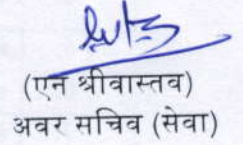 (एन श्रीवास्तव)
अवर सचिव (सेवा)